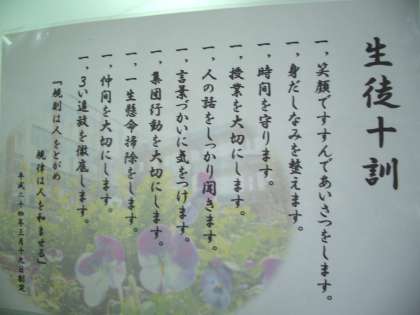 生徒十訓
一、笑顔ですすんであいさつをします。
一、身だしなみを整えます。
一、時間を守ります。
一、授業を大切にします。
一、人の話をしっかり聞きます。
一、言葉づかいに気をつけます。
一、集団行動を大切にします。
一、一生懸命掃除をします。
一、仲間を大切にします。
一、3い追放を徹底します。
「規則は人をとがめ
規律は人を和ませる」
平成二十四年三月十九日制定